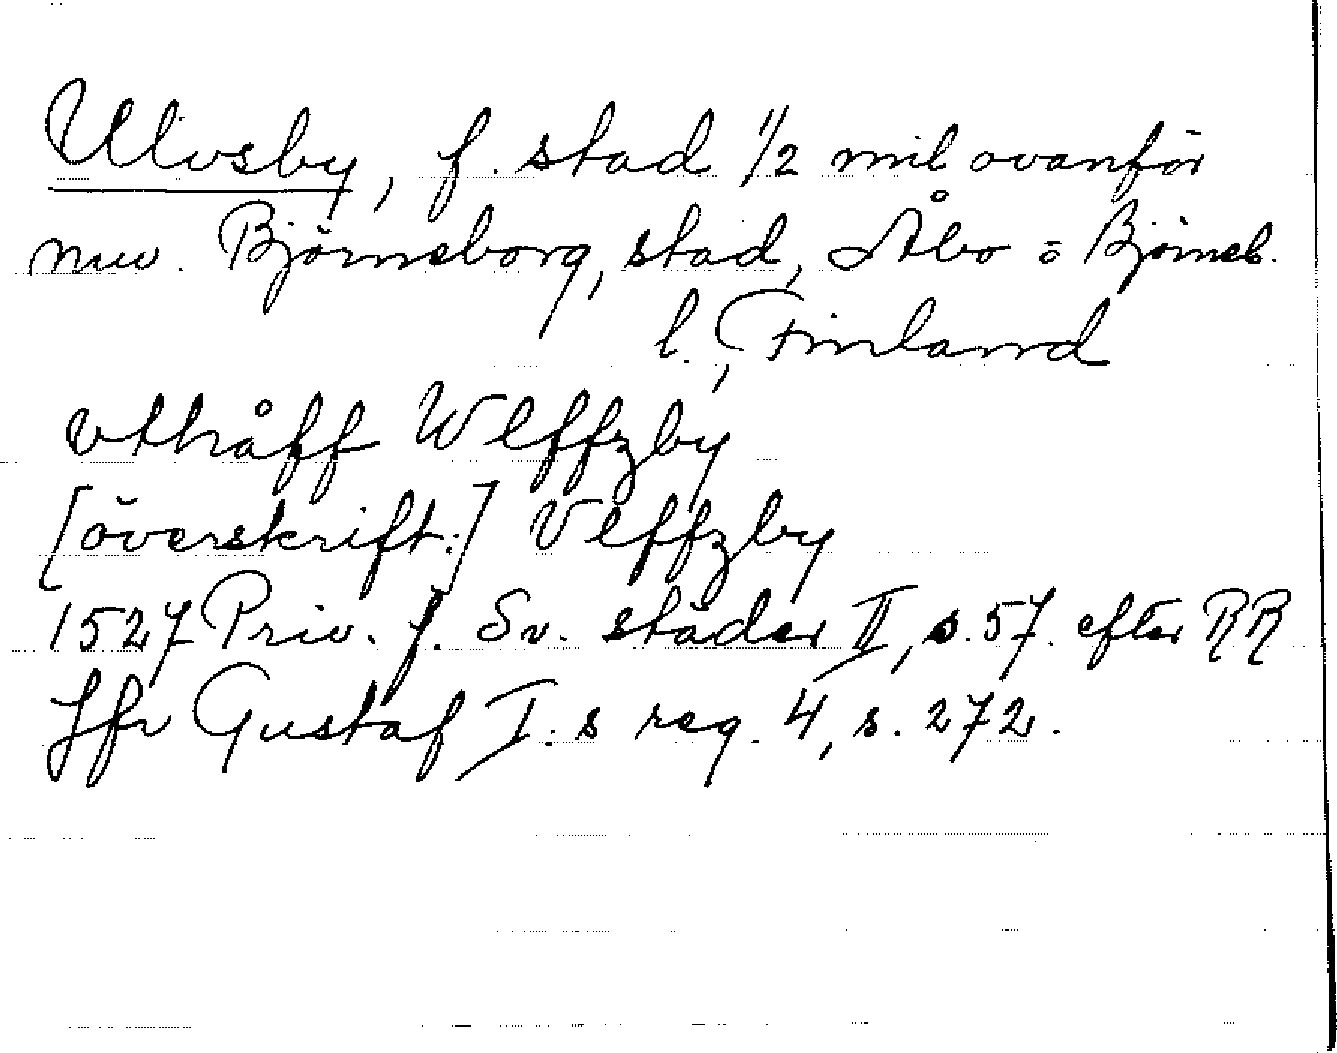 Ulvsby, f. stad 1/2 mil ovanför
nuv. Björneborg, stad, Åbo o Björneb.
l., Finland
vthåff Wlffzby
[överskrift:] Vlffzby
1527 Priv. f. Sv. städer II, s. 57. efter RR
Jfr Gustaf I. s reg. 4, s. 272.